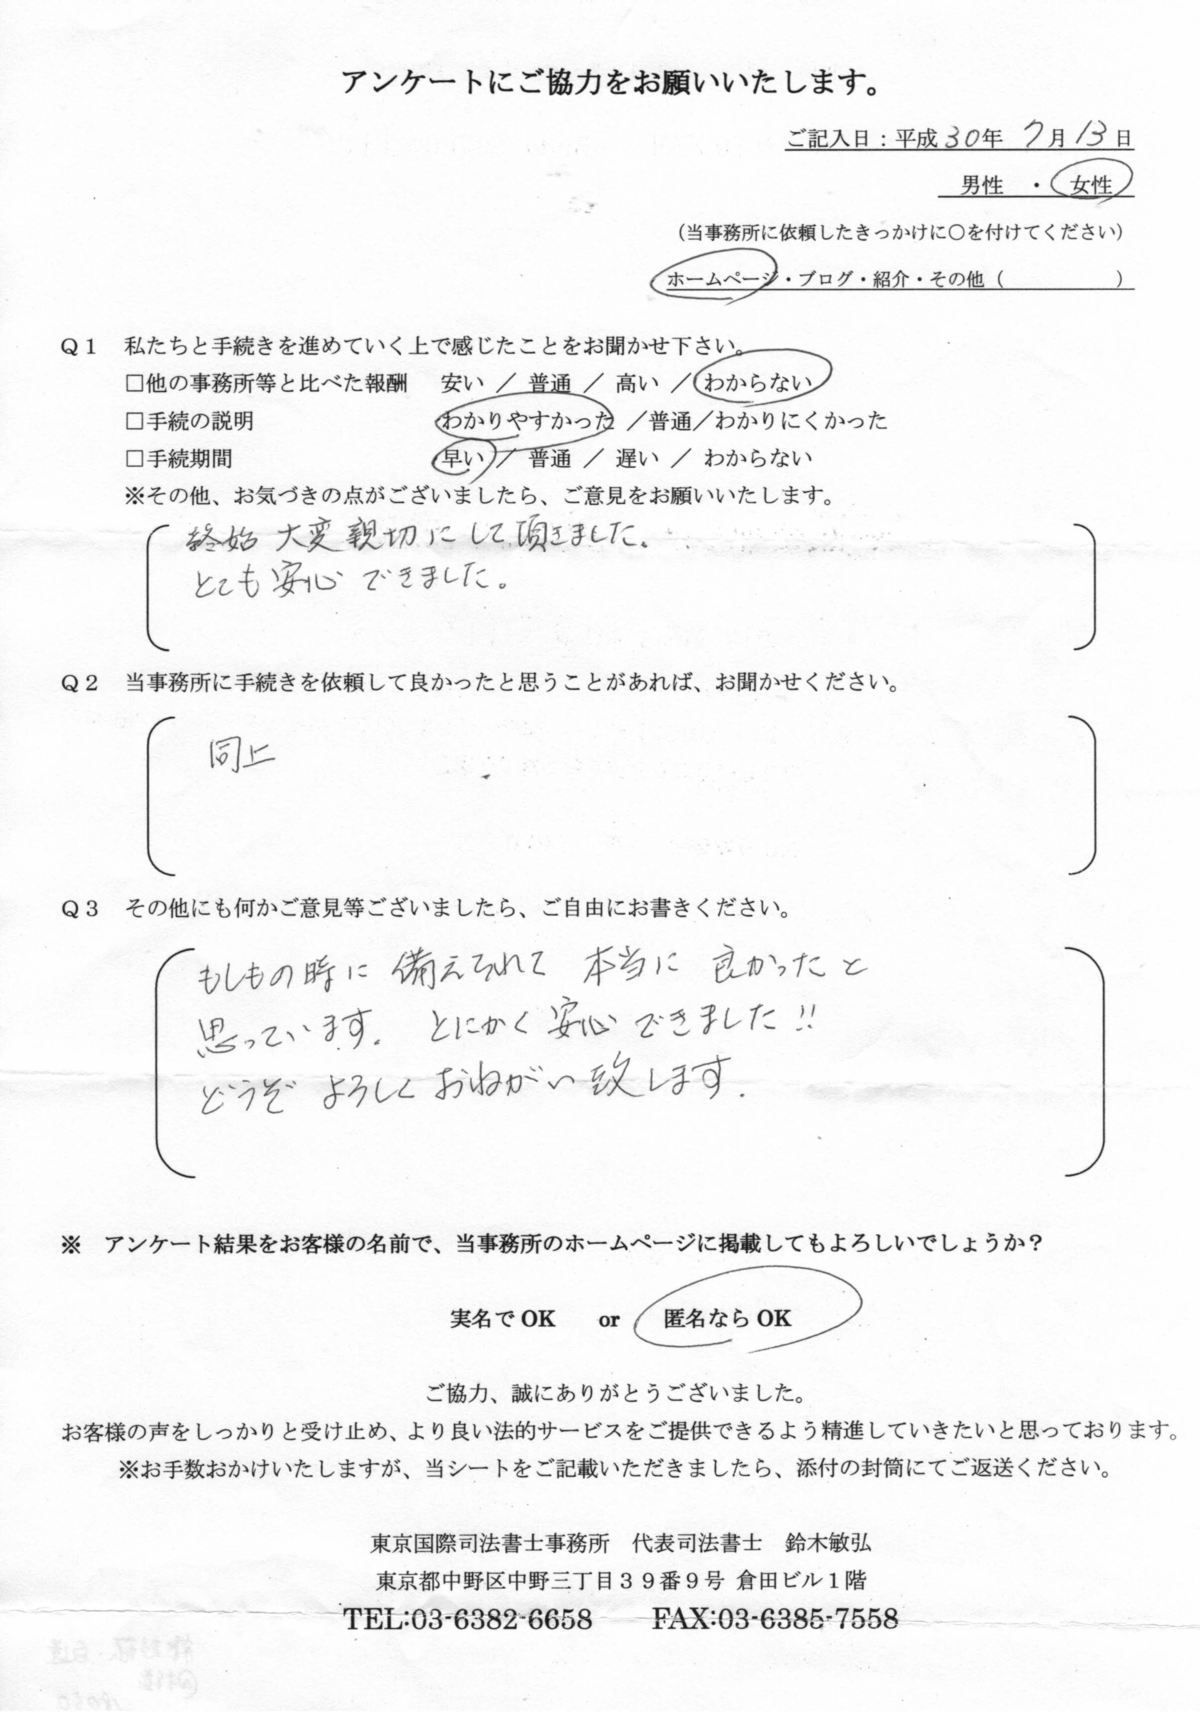 アンケートにご協力をお願いいたします。
ご記入日：平成30年 7月13日
男性 ・ 女性
（当事務所に依頼したきっかけに○を付けてください）
ホームページ・ブログ・紹介・その他（　　　　　　）
Ｑ１ 私たちと手続きを進めていく上で感じたことをお聞かせ下さい。
□他の事務所等と比べた報酬 安い ／ 普通 ／ 高い ／ わからない
□手続の説明 わかりやすかった ／普通／わかりにくかった
□手続期間 早い ／ 普通 ／ 遅い ／ わからない
※その他、お気づきの点がございましたら、ご意見をお願いいたします。
終始 大変親切にして頂きました。
とても安心できました。
Ｑ２ 当事務所に手続きを依頼して良かったと思うことがあれば、お聞かせください。
同上
Ｑ３ その他にも何かご意見等ございましたら、ご自由にお書きください。
もしもの時に 備えられて 本当に 良かったと
思っています。 とにかく安心できました!!
どうぞ よろしく おねがい致します.
※ アンケート結果をお客様の名前で、当事務所のホームページに掲載してもよろしいでしょうか？
実名でOK or 匿名ならOK
ご協力、誠にありがとうございました。
お客様の声をしっかりと受け止め、より良い法的サービスをご提供できるよう精進していきたいと思っております。
※お手数おかけいたしますが、当シートをご記載いただきましたら、添付の封筒にてご返送ください。
東京国際司法書士事務所 代表司法書士 鈴木敏弘
東京都中野区中野三丁目３９番９号 倉田ビル１階
TEL:03-6382-6658 FAX:03-6385-7558